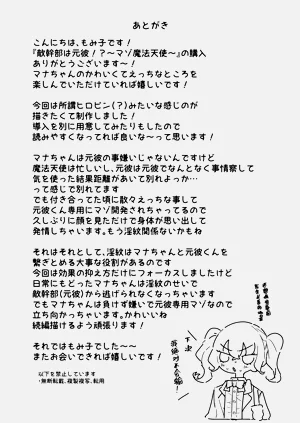 あとがき
こんにちは、もみ子です！
『敵幹部は元彼！？～マゾ魔法天使～』の購入
ありがとうございます～！
マナちゃんのかわいくてえっちなところを
楽しんでいただけていれば嬉しいです！
今回は所謂ヒロピン(？)みたいな感じのが
描きたくて制作しました！
導入を別に用意してみたりもしたので
読みやすくなってれば良いな～って思います！
マナちゃんは元彼の事嫌いじゃないんですけど
魔法天使は忙しいし、元彼は元彼でなんとなく事情察して
気を使った結果距離があいて別れよっか…
って感じで別れてます
でも付き合ってた頃に散々えっちな事して
元彼くん専用にマゾ開発されちゃってるので
久しぶりに顔を見ただけで身体が思い出して
発情しちゃいます。もう淫紋関係ないかもね
それはそれとして、淫紋はマナちゃんと元彼くんを
繋ぎとめる大事な役割があるのです
今回は効果の抑え方だけにフォーカスしましたけど
日常にもどったマナちゃんは淫紋のせいで
敵幹部(元彼)から逃げられなくなっちゃいます
でもマナちゃんは負けず嫌いで元彼専用マゾなので
立ち向かっちゃいます。かわいいね
続編描けるよう頑張ります！
それではもみ子でした～～
またお会いできれば嬉しいです！
以下を禁止しています
・無断転載、複製複写、転用